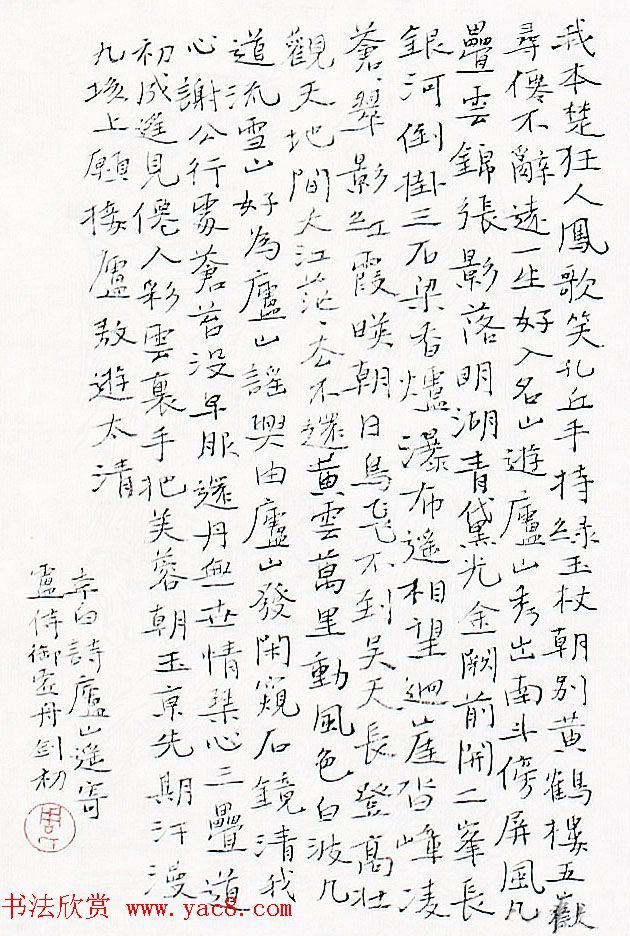 我本楚狂人鳳歌笑孔丘手持綠玉杖朝別黃鶴樓五嶽
尋僊不辭遠一生好入名山遊廬山秀出南斗傍屏風九
疊雲錦張影落明湖青黛光金闕前開二峯長
銀河倒掛三石梁香爐瀑布遙相望迴崖沓嶂凌
蒼蒼翠影紅霞暎朝日鳥飛不到吳天長登高壯
觀天地間大江茫茫去不還黃雲萬里動風色白波九
道流雪山好為廬山謠興由廬山發閑窺石鏡清我
心謝公行處蒼苔沒早服還丹無世情琴心三疊道
初成遙見僊人彩雲裏手把芙蓉朝玉京先期汗漫
九垓上願接盧敖遊太清
李白詩廬山遙寄
盧侍御虛舟
书法欣赏 www.yac8.com